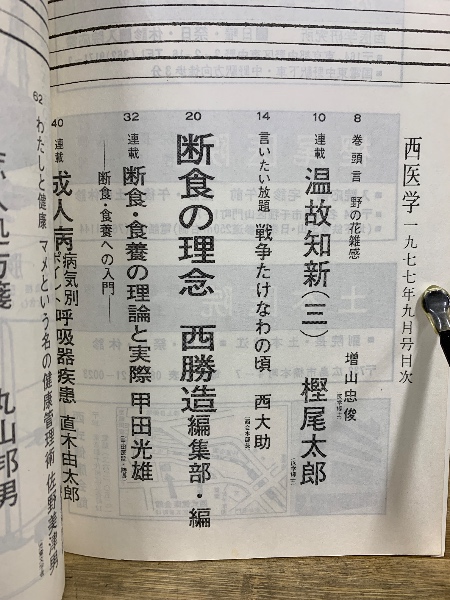 西医学 一九七七年九月号目次
8 巻頭言 野の花雑感 増山忠俊
10 連載 温故知新（三） 樫尾太郎
14 言いたい放題 戦争たけなわの頃 西大助
20 断食の理念 西勝造 編集部・編
32 連載 断食・食養の理論と実際 甲田光雄
――断食・食養への入門――
40 連載 成人病 病気別 呼吸器疾患 直木由太郎
62 わたしと健康 マメという名の健康管理術 佐野美津男
丸山邦男